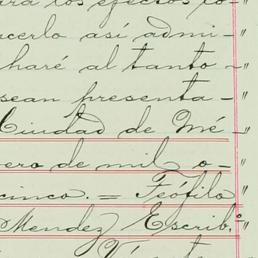 ara los efectos co-"
acerlo así admi-"
haré al tanto -"
sean presenta-"
Ciudad de Mé-"
ero de mil o-"
cinco. = Teófilo "
Mendez Escrib.º"